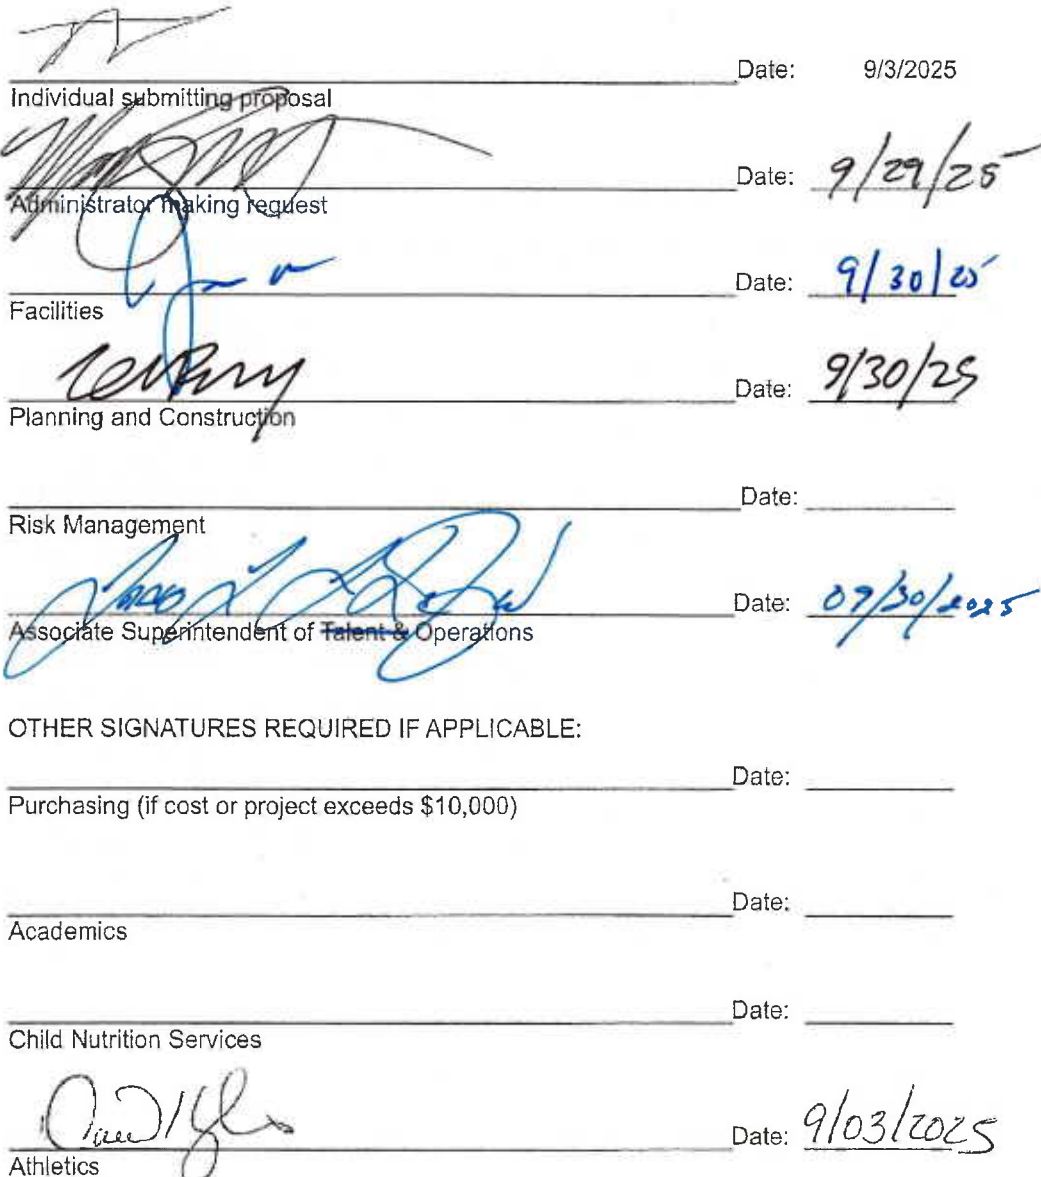 Date: 9/3/2025
Individual submitting proposal
Date: 9/29/25
Administrator making request
Date: 9/30/25
Facilities
Date: 9/30/25
Planning and Construction
Date:
Risk Management
Date: 09/30/2025
Associate Superintendent of Talent & Operations
OTHER SIGNATURES REQUIRED IF APPLICABLE:
Date:
Purchasing (if cost or project exceeds $10,000)
Date:
Academics
Date:
Child Nutrition Services
Date: 9/03/2025
Athletics